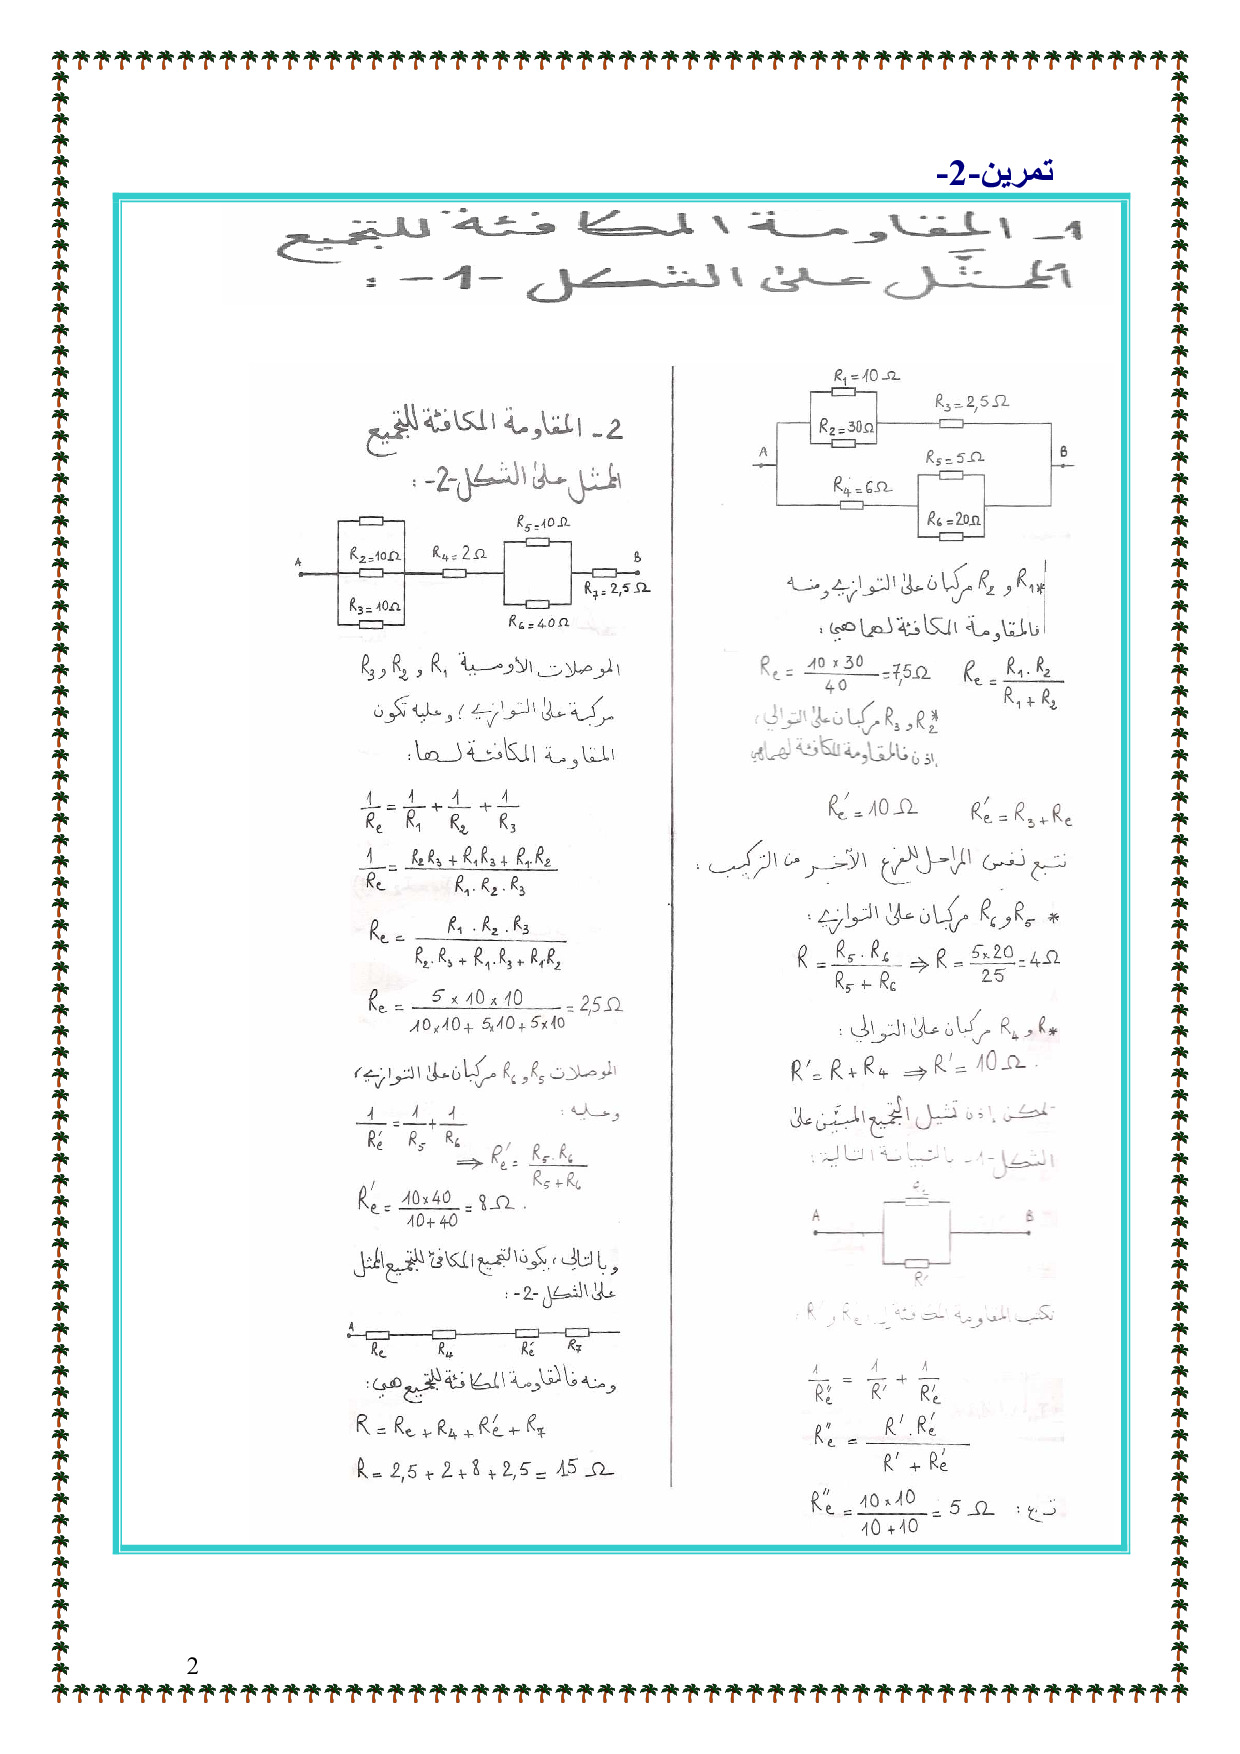 تمرين-2-
1- المقاومة المكافئة للتجميع
الممثل على الشكل -1- :
R₁=10Ω
R₂=30Ω
R₃=2,5Ω
A
B
R₅=5Ω
R₄=6Ω
R₆=20Ω
*R₁ و R₂ مركبان على التوازي ومنه
فالمقاومة المكافئة لهما هي:
Re = R₁.R₂ / R₁+R₂
Re = 10 x 30 / 40 = 7,5Ω
*R₂ و R₃ مركبان على التوالي،
إذن فالمقاومة المكافئة لهما هي
R'e = R₃ + Re
R'e = 10 Ω
نتبع نفس المراحل للفرع الآخر من التركيب :
* R₅ و R₆ مركبان على التوازي :
R = R₅.R₆ / R₅+R₆ ⇒ R = 5x20 / 25 = 4Ω
*R و R₄ مركبان على التوالي :
R' = R + R₄ ⇒ R' = 10Ω .
يمكن إذن تمثيل التجميع المبين على
الشكل -1- بالتبيانة التالية:
A
B
R'
تكتب المقاومة المكافئة لـ R'e و R' :
1/R''e = 1/R' + 1/R'e
R''e = R'.R'e / R' + R'e
ت ع : R''e = 10x10 / 10+10 = 5 Ω
2- المقاومة المكافئة للتجميع
الممثل على الشكل -2- :
A
R₂=10Ω
R₃=10Ω
R₄=2Ω
R₅=10Ω
R₆=40Ω
B
R₇=2,5Ω
الموصلات الأومية R₁ و R₂ و R₃
مركبة على التوازي ، وعليه تكون
المقاومة المكافئة لها:
1/Re = 1/R₁ + 1/R₂ + 1/R₃
1/Re = R₂R₃ + R₁R₃ + R₁.R₂ / R₁.R₂.R₃
Re = R₁.R₂.R₃ / R₂.R₃ + R₁.R₃ + R₁R₂
Re = 5 x 10 x 10 / 10x10 + 5x10 + 5x10 = 2,5Ω
الموصلات R₅ و R₆ مركبان على التوازي ،
وعليه :
1/R'e = 1/R₅ + 1/R₆
⇒ R'e = R₅.R₆ / R₅+R₆
R'e = 10x40 / 10+40 = 8Ω .
وبالتالي ، يكون التجميع المكافئ للتجميع الممثل
على الشكل -2- :
A
Re R₄ R'e R₇
ومنه فالمقاومة المكافئة للتجميع هي:
R = Re + R₄ + R'e + R₇
R = 2,5 + 2 + 8 + 2,5 = 15 Ω
2